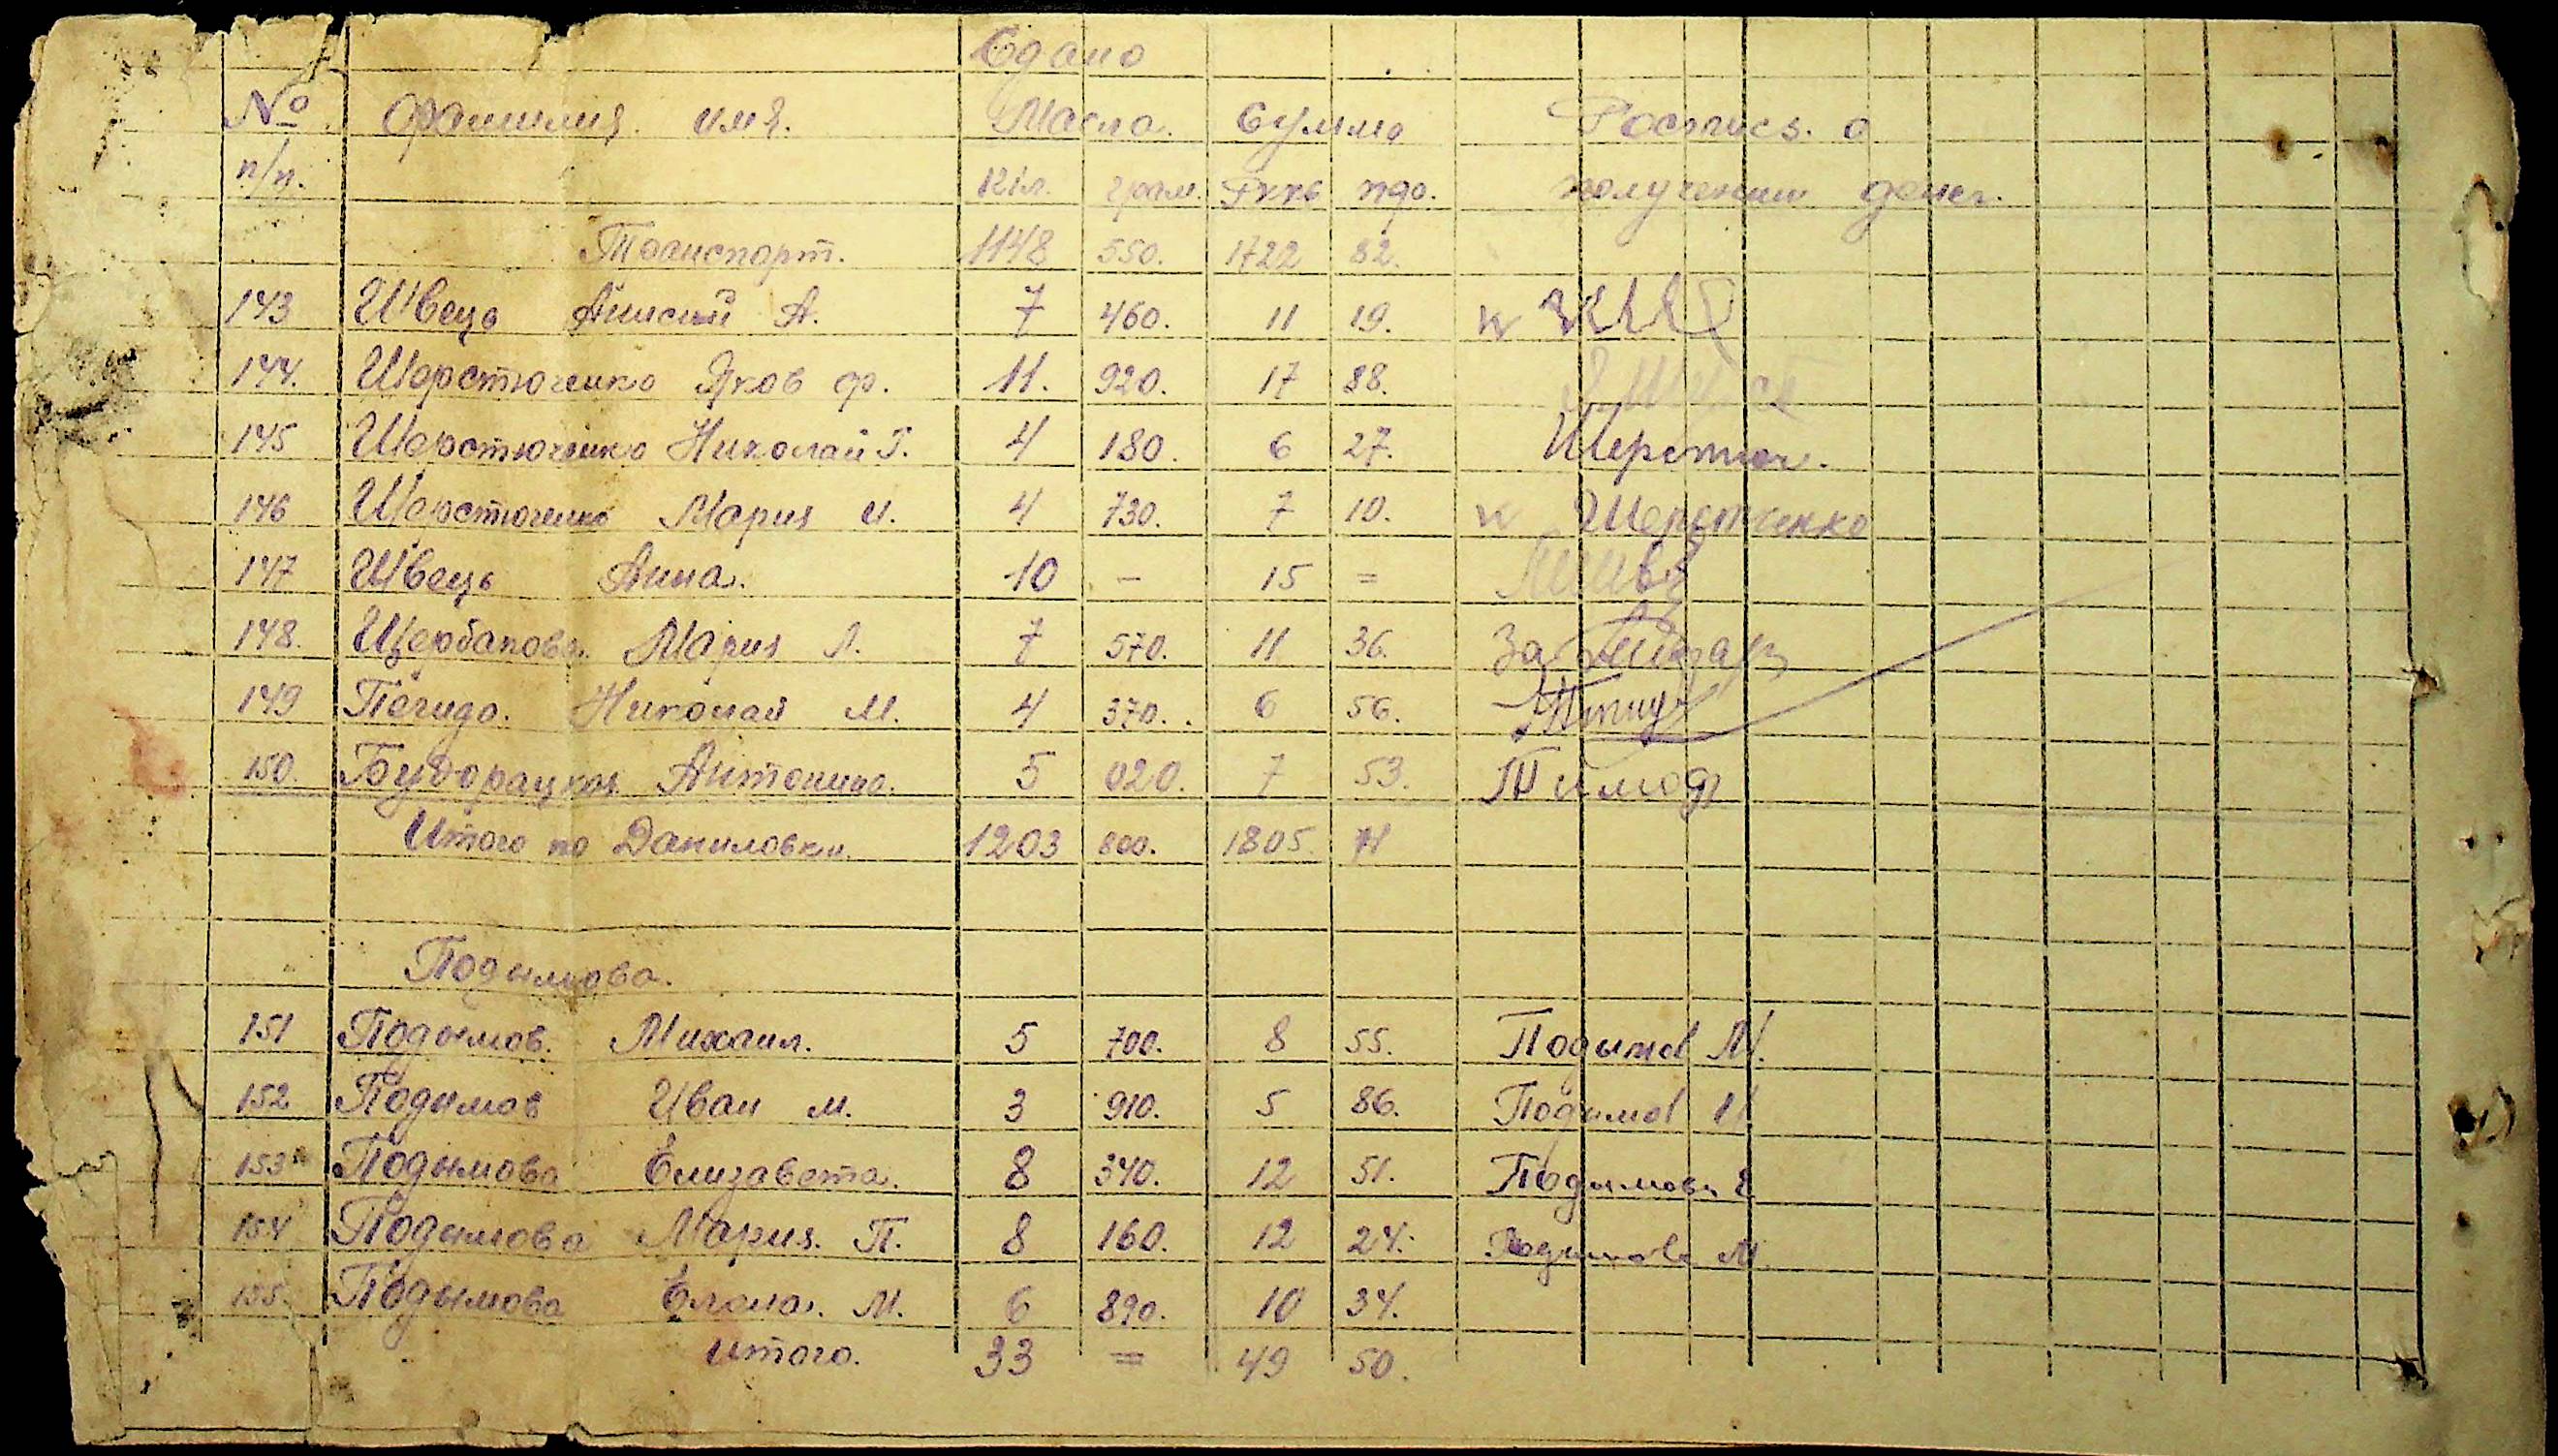 Сдано
№ Фамилия имя. Масла. Сумма Роспись о
п/п. Кіл. грам. Рккб пдо. получении денег.
Транспорт. 1148 550. 1722 82.
143 Швець Анисий А. 7 460. 11 19.
144. Шерстюченко Яков ф. 11. 920. 17 88.
145 Шерстюченко Николай Г. 4 180. 6 27. Шерстюч.
146 Шерстюченко Мария И. 4 730. 7 10. Шерстченко
147 Швець Анна. 10 - 15 =
148. Щербакова Мария Л. 7 570. 11 36. За
149 Пегида. Николай М. 4 370. 6 56.
150. Будорацкая Антонина. 5 020. 7 53. Тимоф
Итого по Даниловки. 1203 800. 1805. 71
Подымова.
151 Подымов. Михаил. 5 700. 8 55. Подымов М.
152 Подымов Иван м. 3 910. 5 86. Подымов И
153 Подымова Елизавета. 8 340. 12 51. Подымова Е
154 Подымова Мария. П. 8 160. 12 24. Подымова М
155. Подымова Елена. М. 6 890. 10 34.
итого. 33 = 49 50.